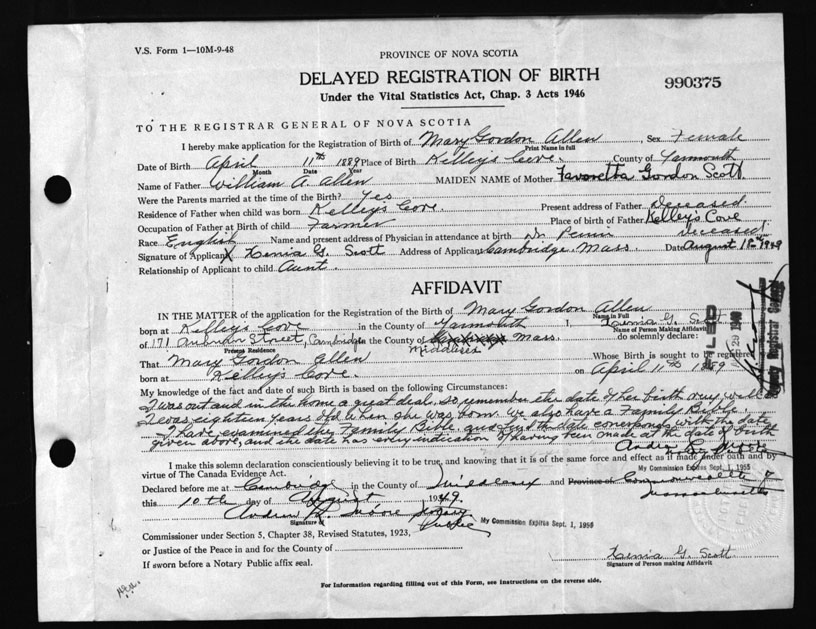 V.S. Form 1—10M-9-48
PROVINCE OF NOVA SCOTIA
DELAYED REGISTRATION OF BIRTH
Under the Vital Statistics Act, Chap. 3 Acts 1946
990375
TO THE REGISTRAR GENERAL OF NOVA SCOTIA
I hereby make application for the Registration of Birth of Mary Gordon Allen, Sex Female
Print Name in full
Date of Birth April 11th 1889 Place of Birth Kelley's Cove. County of Yarmouth
Month Date Year
Name of Father William A. Allen MAIDEN NAME of Mother Favoretta Gordon Scott.
Were the Parents married at time of the Birth? Yes
Residence of Father when child was born Kelley's Cove. Present address of Father Deceased.
Occupation of Father at Birth of child Farmer Place of birth of Father Kelley's Cove
Race English Name and present address of Physician in attendance at birth Dr. Deceased
Signature of Applicant X Xenia G. Scott Address of Applicant Cambridge, Mass. Date August 1949
Relationship of Applicant to child Aunt.
AFFIDAVIT
IN THE MATTER of the application for the Registration of the Birth of Mary Gordon Allen
Name in Full
born at Kelley's Cove in the County of Yarmouth I, Xenia G. Scott
Name of Person Making Affidavit
of 171 Auburn Street, Cambridge in the County of Mass. do solemnly declare:
Present Residence
Middlesex
That Mary Gordon Allen Whose Birth is sought to be registered
born at Kelley's Cove. on April 11th 1889
My knowledge of the fact and date of such Birth is based on the following Circumstances:
I was out and in the home a great deal, so remember the date of her birth very well as
I was eighteen years old when she was born. We also have a Family Bible.
I have examined the Family Bible and find the date corresponds with the date
given above, and the date has every indication of having been made at the date of birth
Andrew
I make this solemn declaration conscientiously believing it to be true, and knowing that it is of the same force and effect as if made under oath and by
My Commission Expires Sept. 1, 1955
virtue of The Canada Evidence Act.
Declared before me at Cambridge in the County of Middlesex and Province of Commonwealth of
Massachusetts
this 10th day of August 1949.
Andrew Moore Notary
Public
Signature of
My Commission Expires Sept. 1, 1955
Commissioner under Section 5, Chapter 38, Revised Statutes, 1923,
or Justice of the Peace in and for the County of
If sworn before a Notary Public affix seal.
Xenia G. Scott
Signature of Person making Affidavit
For Information regarding filling out of this Form, see instructions on the reverse side.